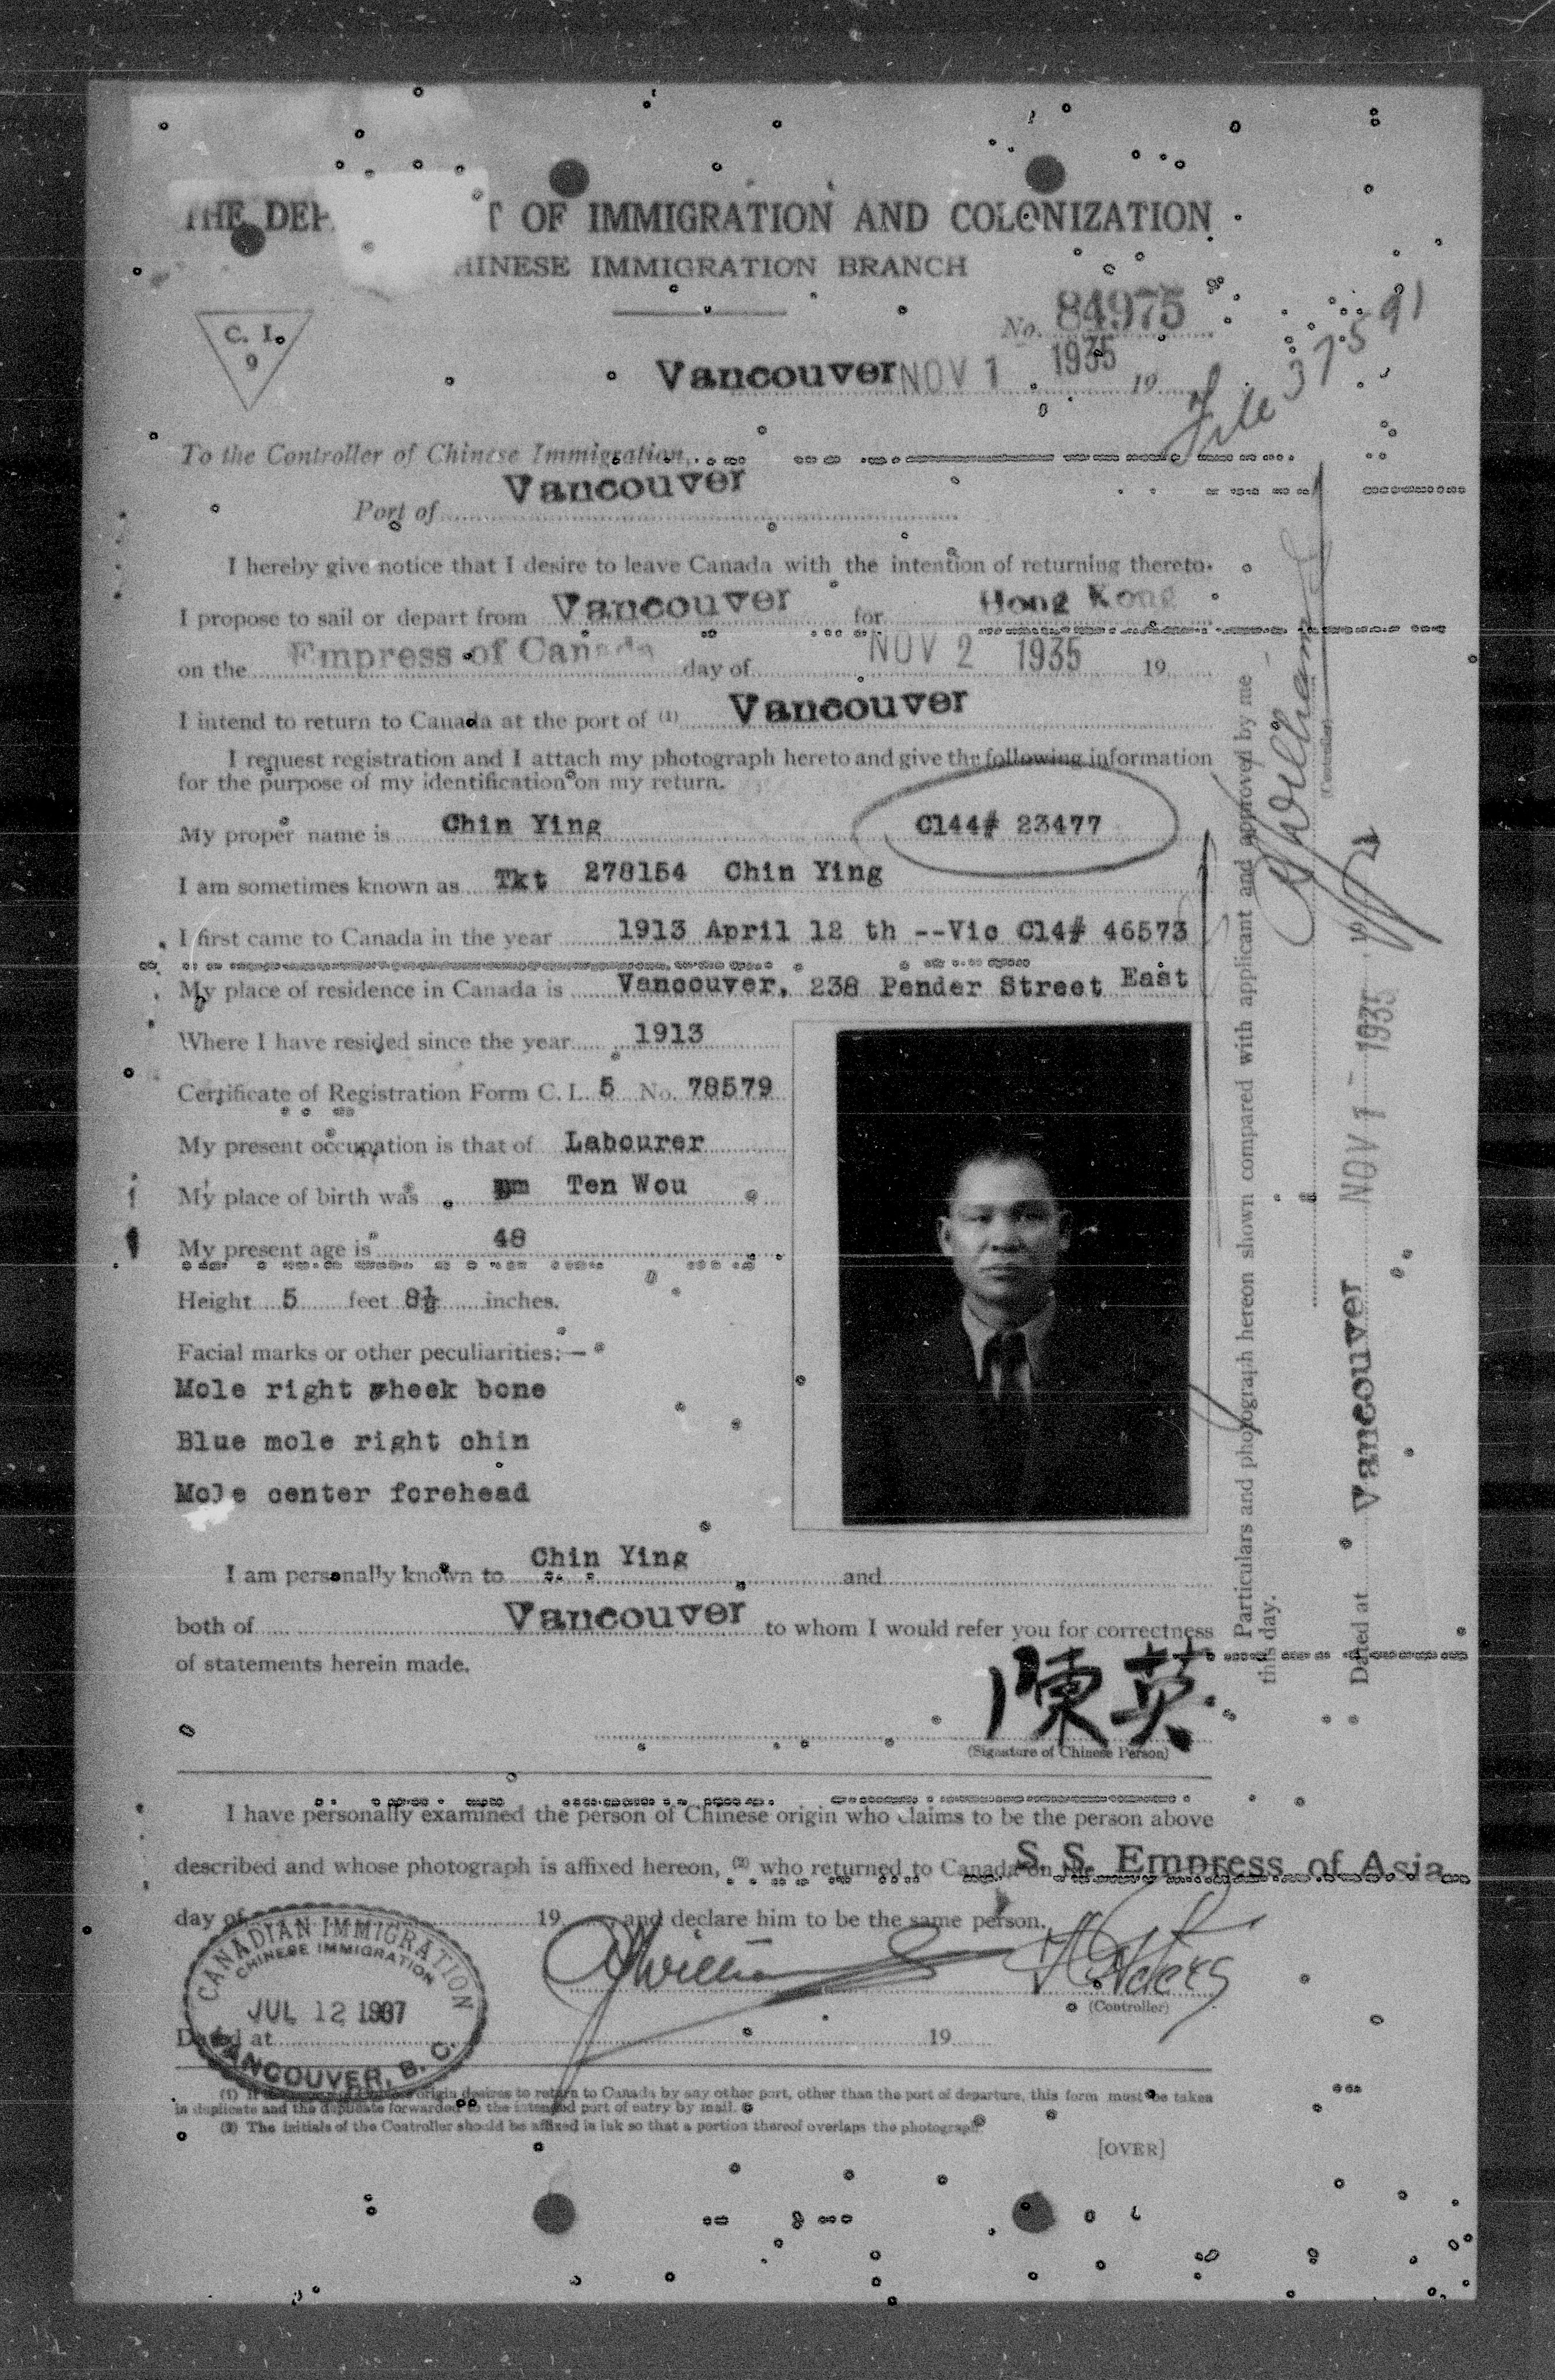 THE DEP T OF IMMIGRATION AND COLONIZATION
HINESE IMMIGRATION BRANCH
C. I.
9
No. 84975
File 37591
Vancouver NOV 1 1935 19
To the Controller of Chinese Immigration,
Vancouver
Port of
I hereby give notice that I desire to leave Canada with the intention of returning thereto.
I propose to sail or depart from Vancouver for Hong Kong
on the Empress of Canada day of NOV 2 1935 19
I intend to return to Canada at the port of (1) Vancouver
I request registration and I attach my photograph hereto and give the following information
for the purpose of my identification on my return.
My proper name is Chin Ying C144# 23477
I am sometimes known as Tkt 278154 Chin Ying
I first came to Canada in the year 1913 April 12 th --Vic C14# 46573
My place of residence in Canada is Vancouver, 238 Pender Street East
Where I have resided since the year 1913
Certificate of Registration Form C. I. 5 No. 78579
My present occupation is that of Labourer
My place of birth was Ten Wou
My present age is 48
Height 5 feet 8½ inches.
Facial marks or other peculiarities:—
Mole right cheek bone
Blue mole right chin
Mole center forehead
I am personally known to Chin Ying and
both of Vancouver to whom I would refer you for correctness
of statements herein made.
陳英
(Signature of Chinese Person)
I have personally examined the person of Chinese origin who claims to be the person above
described and whose photograph is affixed hereon, (2) who returned to Canada on the S. S. Empress of Asia
day of 19 and declare him to be the same person.
(Controller)
CANADIAN IMMIGRATION
CHINESE IMMIGRATION
JUL 12 1937
VANCOUVER, B. C.
Dated at 19
(1) If the person of Chinese origin desires to return to Canada by any other port, other than the port of departure, this form must be taken
in duplicate and the duplicate forwarded to the intended port of entry by mail.
(2) The initials of the Controller should be affixed in ink so that a portion thereof overlaps the photograph.
[OVER]
Particulars and photograph hereon shown compared with applicant and approved by me
this day.
(Controller)
Dated at Vancouver NOV 1 - 1935 19